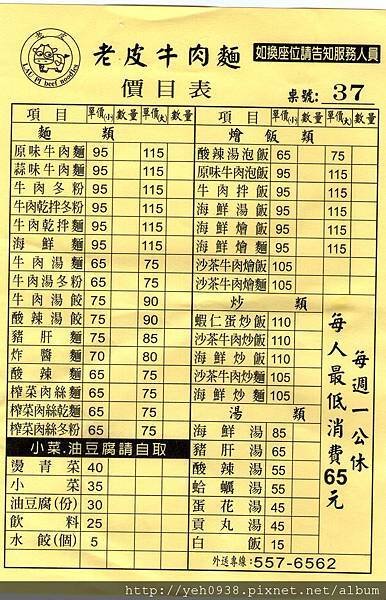 老皮
LAU PI beef noodles
老皮牛肉麵
如換座位請告知服務人員
價目表
桌號: 37
項目 單價(小) 數量 單價(大) 數量
麵類
原味牛肉麵 95 115
蒜味牛肉麵 95 115
牛肉冬粉 95 115
牛肉乾拌冬粉 95 115
牛肉乾拌麵 95 115
海鮮麵 95 115
牛肉湯麵 65 75
牛肉湯冬粉 65 75
牛肉湯餃 75 90
酸辣湯餃 75 90
豬肝麵 75 85
炸醬麵 70 80
酸辣麵 65 75
榨菜肉絲麵 65 75
榨菜肉絲乾麵 65 75
榨菜肉絲冬粉 65 75
小菜.油豆腐請自取
燙青菜 40
小菜 35
油豆腐(份) 30
飲料 25
水餃(個) 5
項目 單價(小) 數量 單價(大) 數量
燴飯類
酸辣湯泡飯 65 75
原味牛肉泡飯 95 115
牛肉拌飯 95 115
海鮮湯飯 95 115
海鮮燴飯 95 115
海鮮燴麵 95 115
沙茶牛肉燴飯 105
沙茶牛肉燴麵 105
炒類
蝦仁蛋炒飯 110
沙茶牛肉炒飯 110
海鮮炒飯 110
沙茶牛肉炒麵 105
海鮮炒麵 105
湯類
海鮮湯 85
豬肝湯 65
酸辣湯 55
蛤蠣湯 55
蛋花湯 45
貢丸湯 45
白飯 15
每週一公休
每人最低消費65元
外送專線:557-6562
http://yeh0938.pixnet.net/album